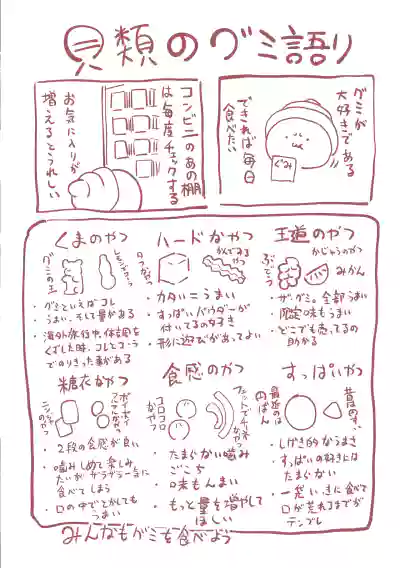 貝類のグミ語り
グミが
大好きである
できれば毎日
食べたい
ぐみ
コンビニのあの棚
は毎度チェックする
お気に入りが
増えるとうれしい
くまのやつ
グミの王
・グミといえばコレ
・うまい、そして量がある
・海外旅行中、体調を
くずした時、コレとコーラ
でのりきった事がある
ハードなやつ
かんでるやつ
・カタい=うまい
・すっぱいパウダーが
付いてるの好き
・形に遊びがあってよい
王道のやつ
かじゅうのやつ
ぶどう
みかん
・ザ・グミ。全部うまい
・限定味もうまい
・どこでも売ってるの
助かる
糖衣なやつ
・2段の食感が良い
・噛みしめて楽しみ
たいがザラザラ一気に
食べてしまう
・口の中でとかしても
うまい
食感のやつ
コロコロ
なやつ
・たまらない噛み
ごこち
・味もんまい
・もっと量を増やして
ほしい
すっぱいやつ
最近のは
円ばん
昔のす。
・しげき的なうまさ
・すっぱいの好きには
たまらない
・一気にいっきに食べて
口が荒れるまでが
テンプレ
みんなもグミを食べよう